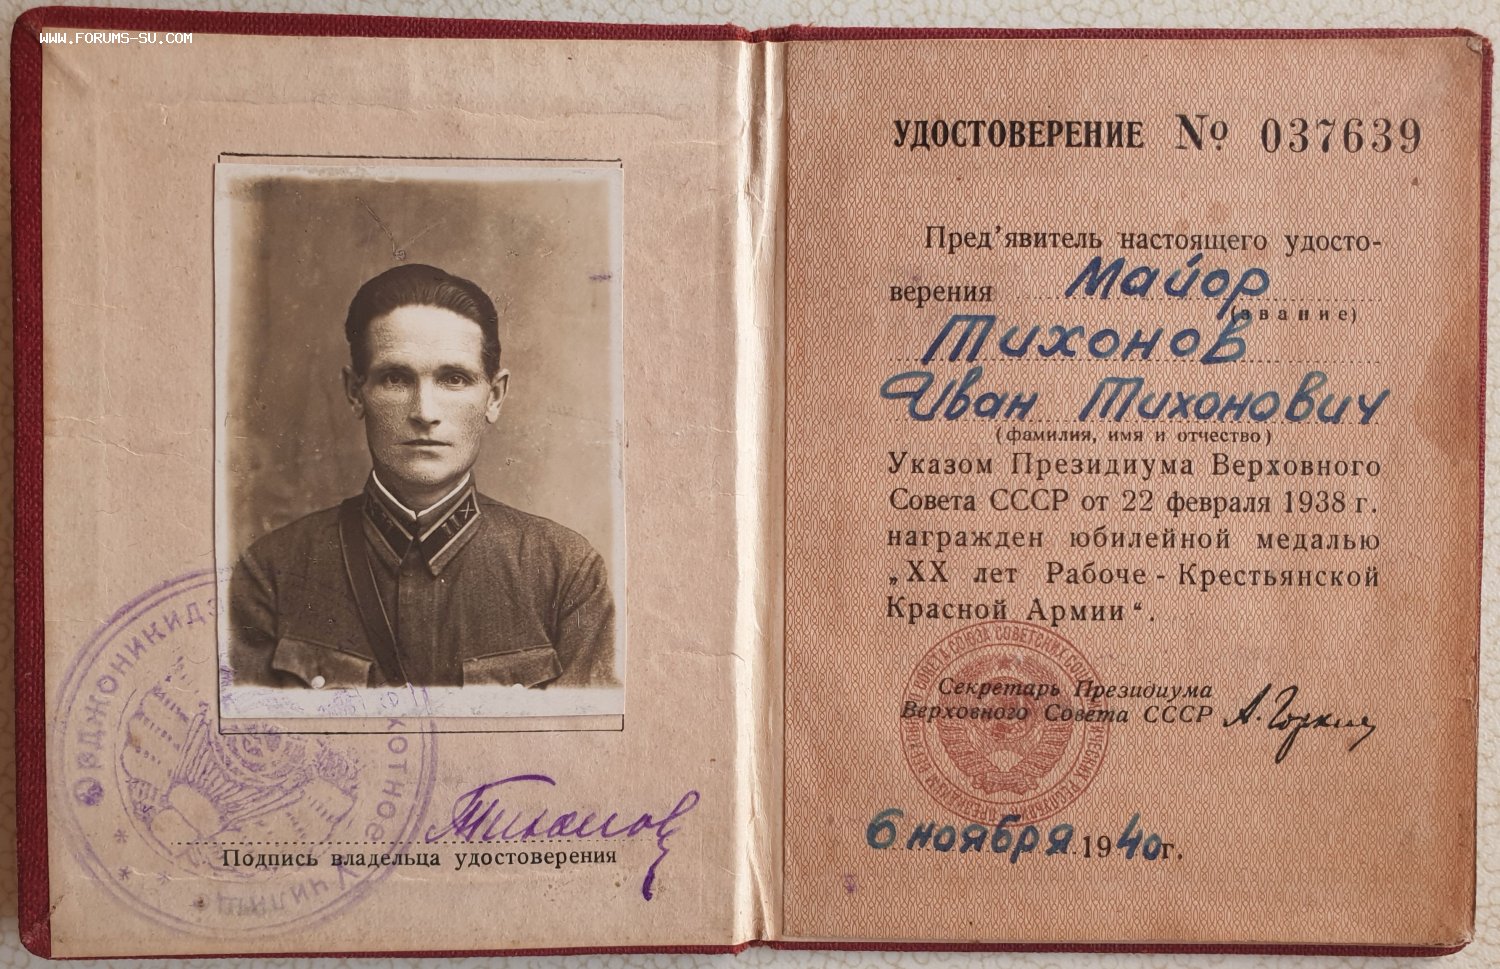 WWW.FORUMS-SU.COM
ОРДЖОНИКИДЗ
ХОТНОЕ
УЧИЛИЩЕ
Тихонов
Подпись владельца удостоверения
УДОСТОВЕРЕНИЕ № 037639
Пред'явитель настоящего удосто-
верения Майор
(звание)
Тихонов
Иван Тихонович
(фамилия, имя и отчество)
Указом Президиума Верховного
Совета СССР от 22 февраля 1938 г.
награжден юбилейной медалью
„XX лет Рабоче - Крестьянской
Красной Армии“.
Секретарь Президиума
Верховного Совета СССР А. Горкин
6 ноября 1940 г.